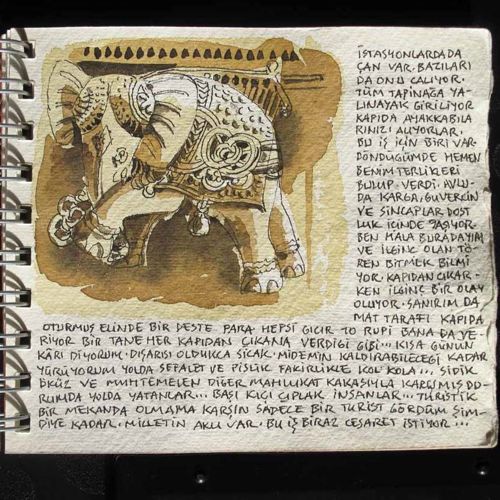 İSTASYONLARDA DA
ÇAN VAR. BAZILARI
DA ONU ÇALIYOR.
TÜM TAPINAĞA YA-
LINAYAK GİRİLİYOR
KAPIDA AYAKKABILA
RINIZI ALIYORLAR.
BU İŞ İÇİN BİRİ VAR.
DÖNDÜĞÜMDE HEMEN
BENİM TERLİKLERİ
BULUP VERDİ. AVLU-
DA KARGA, GÜVERCİN
VE SİNCAPLAR DOST
LUK İÇİNDE YAŞIYOR.
BEN HALA BURADAYIM
VE İLGİNÇ OLAN TÖ-
REN BİTMEK BİLMİ
YOR. KAPIDAN ÇIKAR-
KEN İLGİNÇ BİR OLAY
OLUYOR. SANIRIM DA
MAT TARAFI KAPIDA
OTURMUŞ ELİNDE BİR DESTE PARA HEPSİ GICIR 10 RUPİ BANA DA VE
RİYOR BİR TANE HER KAPIDAN ÇIKANA VERDİĞİ GİBİ... KISA GÜNÜN
KÂRI DİYORUM. DIŞARISI OLDUKÇA SICAK. MİDEMİN KALDIRABİLECEĞİ KADAR
YÜRÜYORUM YOLDA SEFALET VE PİSLİK FAKİRLİKLE KOL KOLA... SİDİK
ÖKÜZ VE MUHTEMELEN DİĞER MAHLUKAT KAKASIYLA KARIŞMIŞ DU
RUMDA YOLDA YATANLAR... BAŞI KIÇI ÇIPLAK İNSANLAR... TURİSTİK
BİR MEKANDA OLMAMA KARŞIN SADECE BİR TURİST GÖRDÜM ŞİM-
DİYE KADAR. MİLLETİN AKLI VAR. BU İŞ BİRAZ CESARET İSTİYOR...